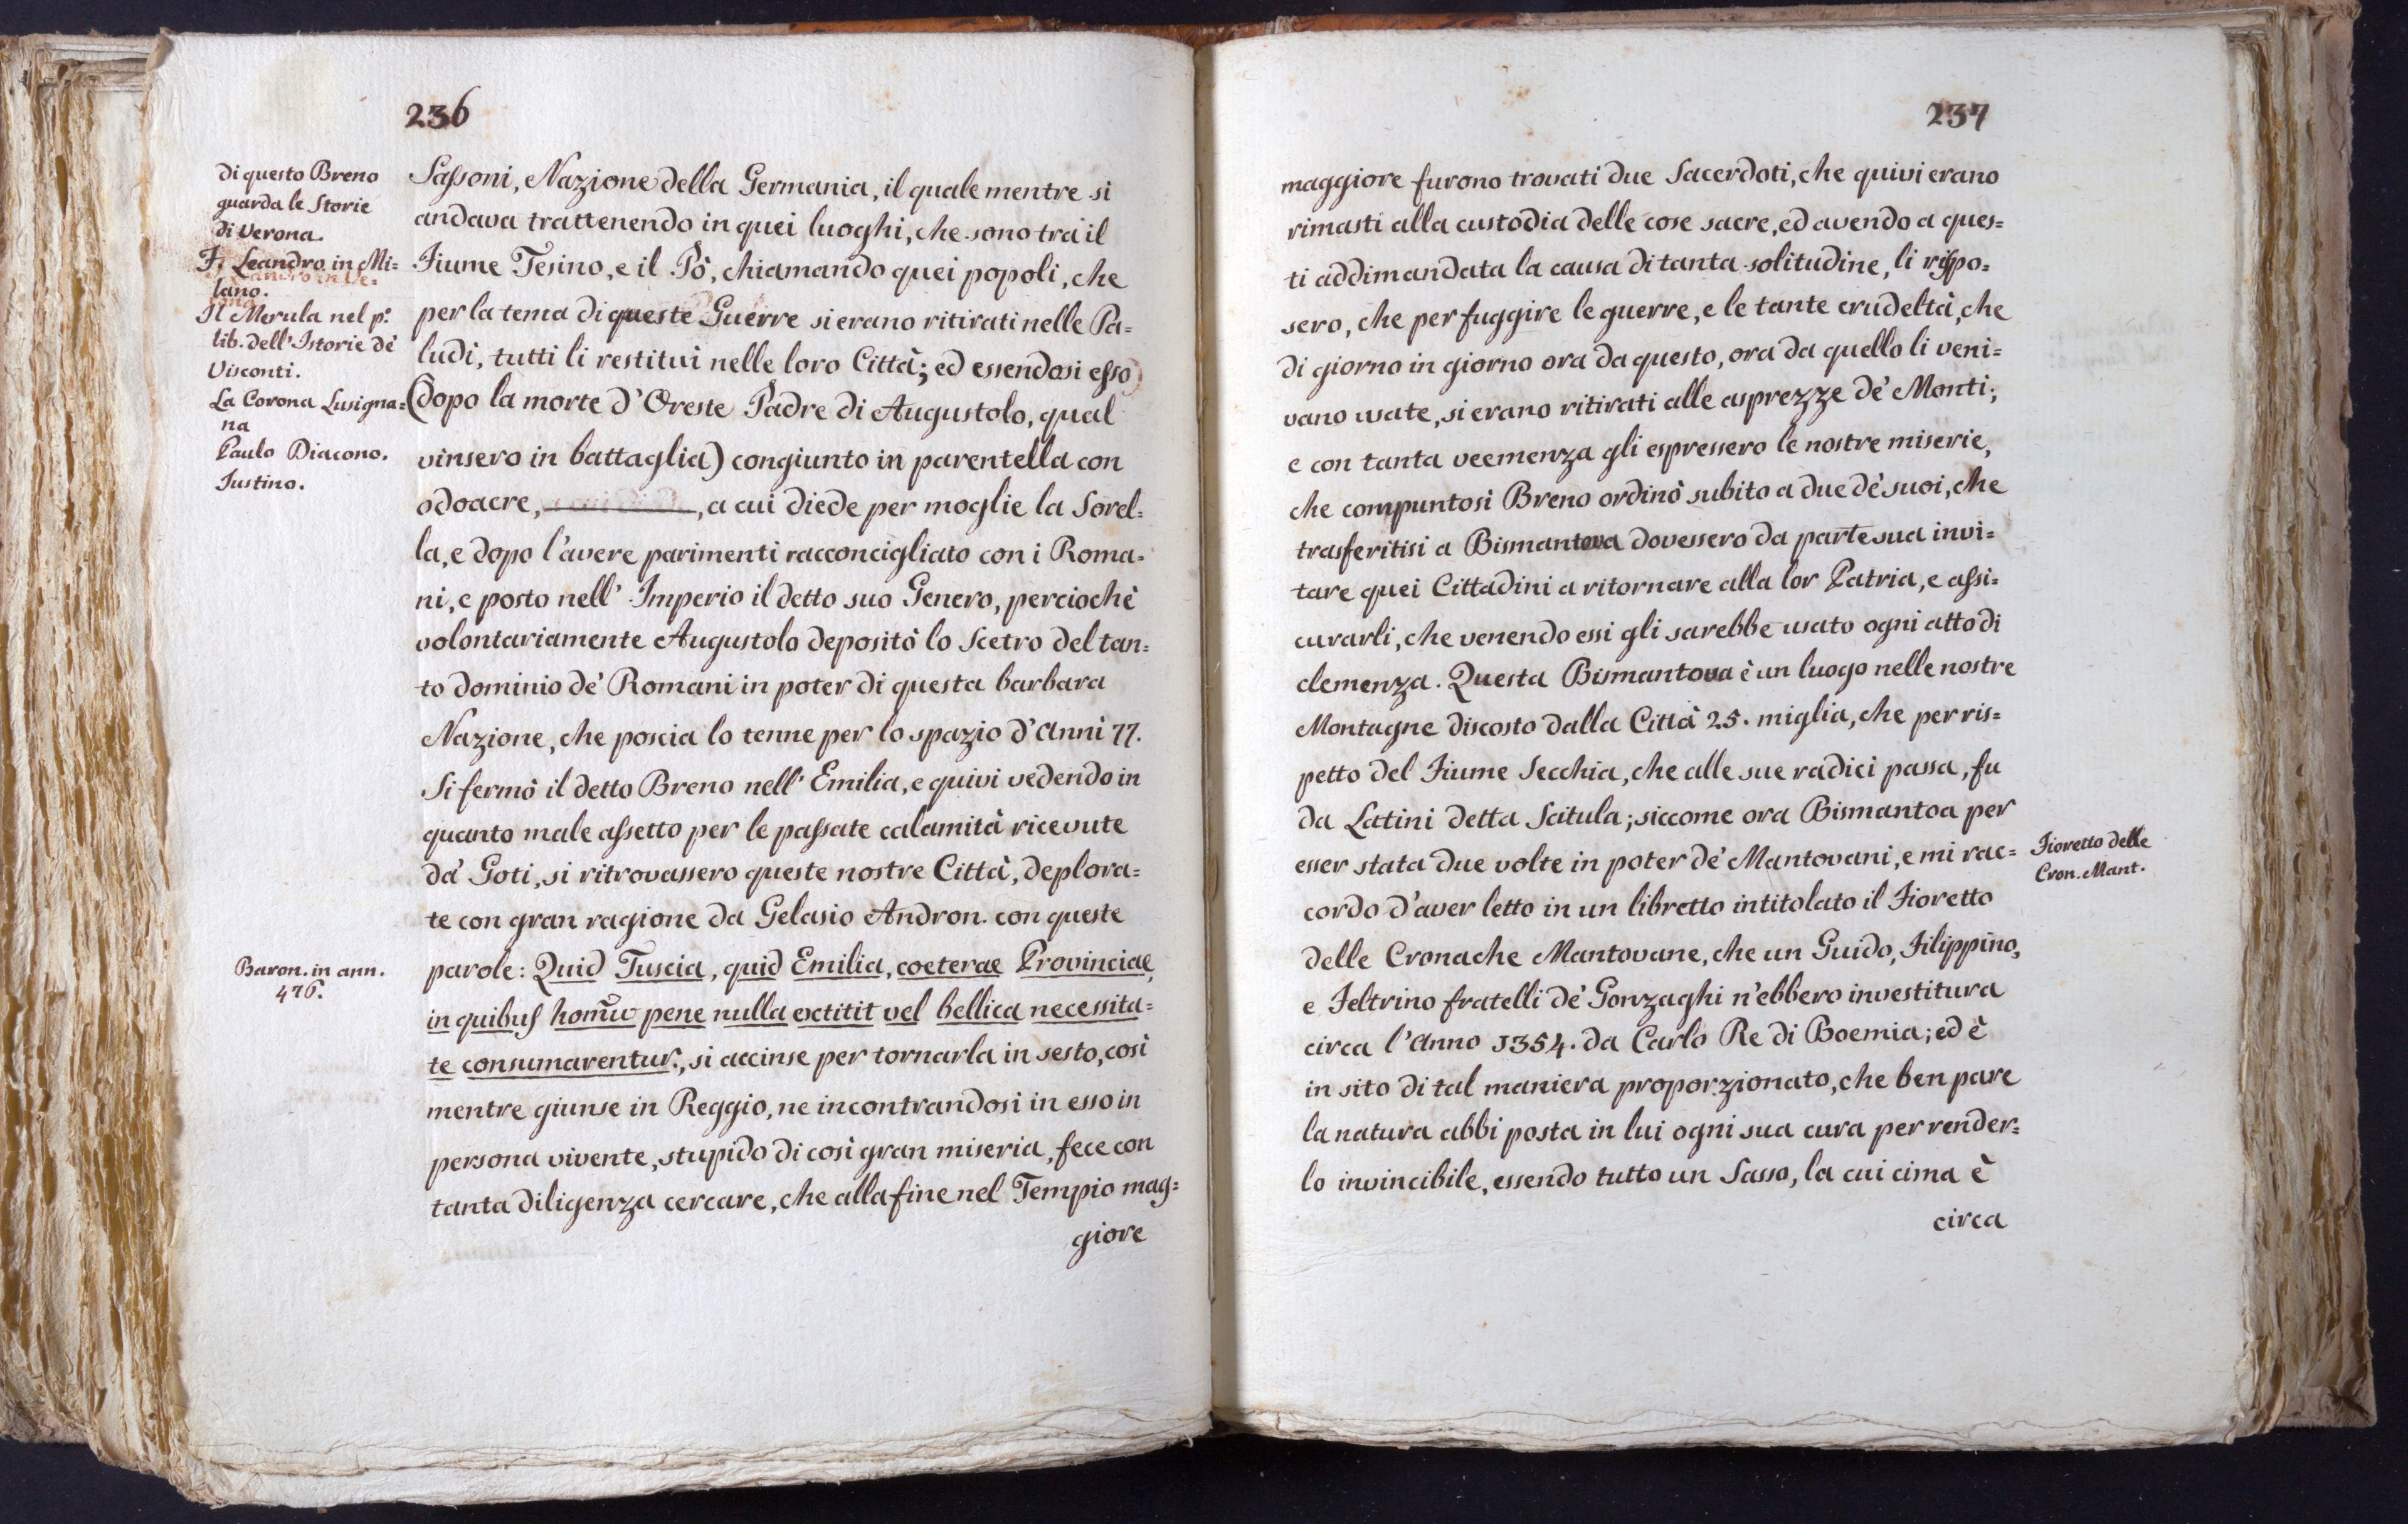 236
di questo Breno
guarda le Storie
di Verona.
F. Leandro in Mi=
lano.
Il Merula nel p.º
lib. dell'Istorie de'
Visconti.
La Corona Lusigna=
na
Paulo Diacono.
Iustino.
Sassoni, Nazione della Germania, il quale mentre si
andava trattenendo in quei luoghi, che sono tra il
Fiume Tesino, e il Pò, chiamando quei popoli, che
per la tema di queste Guerre si erano ritirati nelle Pa=
ludi, tutti li restituì nelle loro Città; ed essendosi esso
(dopo la morte d'Oreste Padre di Augustolo, qual
vinsero in battaglia) congiunto in parentella con
odoacre, , a cui diede per moglie la Sorel=
la, e dopo l'avere parimenti racconcigliato con i Roma=
ni, e posto nell' Imperio il detto suo Genero, perciochè
volontariamente Augustolo depositò lo Scetro del tan=
to dominio de' Romani in poter di questa barbara
Nazione, che poscia lo tenne per lo spazio d'Anni 77.
Si fermò il detto Breno nell' Emilia, e quivi vedendo in
quanto male assetto per le passate calamità ricevute
da' Goti, si ritrovassero queste nostre Città, deplora=
te con gran ragione da Gelasio Andron. con queste
Baron. in ann.
476.
parole: Quid Tuscia, quid Emilia, coeterae Provinciae,
in quibus pene nulla extitit vel bellica necessita=
te consumarentur., si accinse per tornarla in sesto, così
mentre giunse in Reggio, ne incontrandosi in esso in
persona vivente, stupido di così gran miseria, fece con
tanta diligenza cercare, che alla fine nel Tempio mag=
giore
237
maggiore furono trovati due Sacerdoti, che quivi erano
rimasti alla custodia delle cose sacre, ed avendo a ques=
ti addimandata la causa di tanta solitudine, li rispo=
sero, che per fuggire le guerre, e le tante crudeltà, che
di giorno in giorno ora da questo, ora da quello li veni=
vano usate, si erano ritirati alle asprezze de' Monti;
e con tanta veemenza gli espressero le nostre miserie,
che compuntosi Breno ordinò subito a due de' suoi, che
trasferitisi a Bismantova dovessero da parte sua invi=
tare quei Cittadini a ritornare alla lor Patria, e assi=
curarli, che venendo essi gli sarebbe usato ogni atto di
clemenza. Questa Bismantova è un luogo nelle nostre
Montagne discosto dalla Città 25. miglia, che per ris=
petto del Fiume Secchia, che alle sue radici passa, fu
da Latini detta Scitula; siccome ora Bismantoa per
esser stata due volte in poter de' Mantovani, e mi rac=
Fioretto delle
Cron. Mant.
cordo d'aver letto in un libretto intitolato il Fioretto
delle Cronache Mantovane, che un Guido, Filippino,
e Feltrino fratelli de' Gonzaghi n'ebbero investitura
circa l'Anno 1354. da Carlo Re di Boemia; ed è
in sito di tal maniera proporzionato, che ben pare
la natura abbi posta in lui ogni sua cura per render=
lo invincibile, essendo tutto un Sasso, la cui cima è
circa